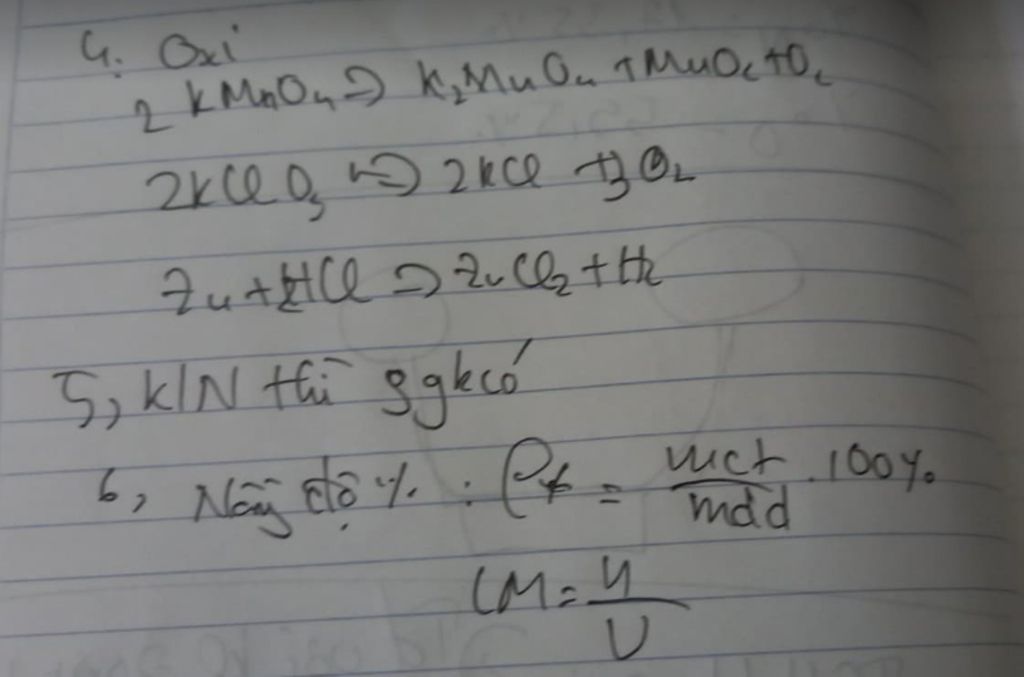 4. Oxi
2 KMnO₄ => K₂MnO₄ + MnO₂ + O₂
2KClO₃ => 2KCl + 3O₂
Zn + 2HCl => ZnCl₂ + H₂
5, KIN thì ggkcó
6, Nồng độ % : C% = mct/mdd . 100%
CM = n/V